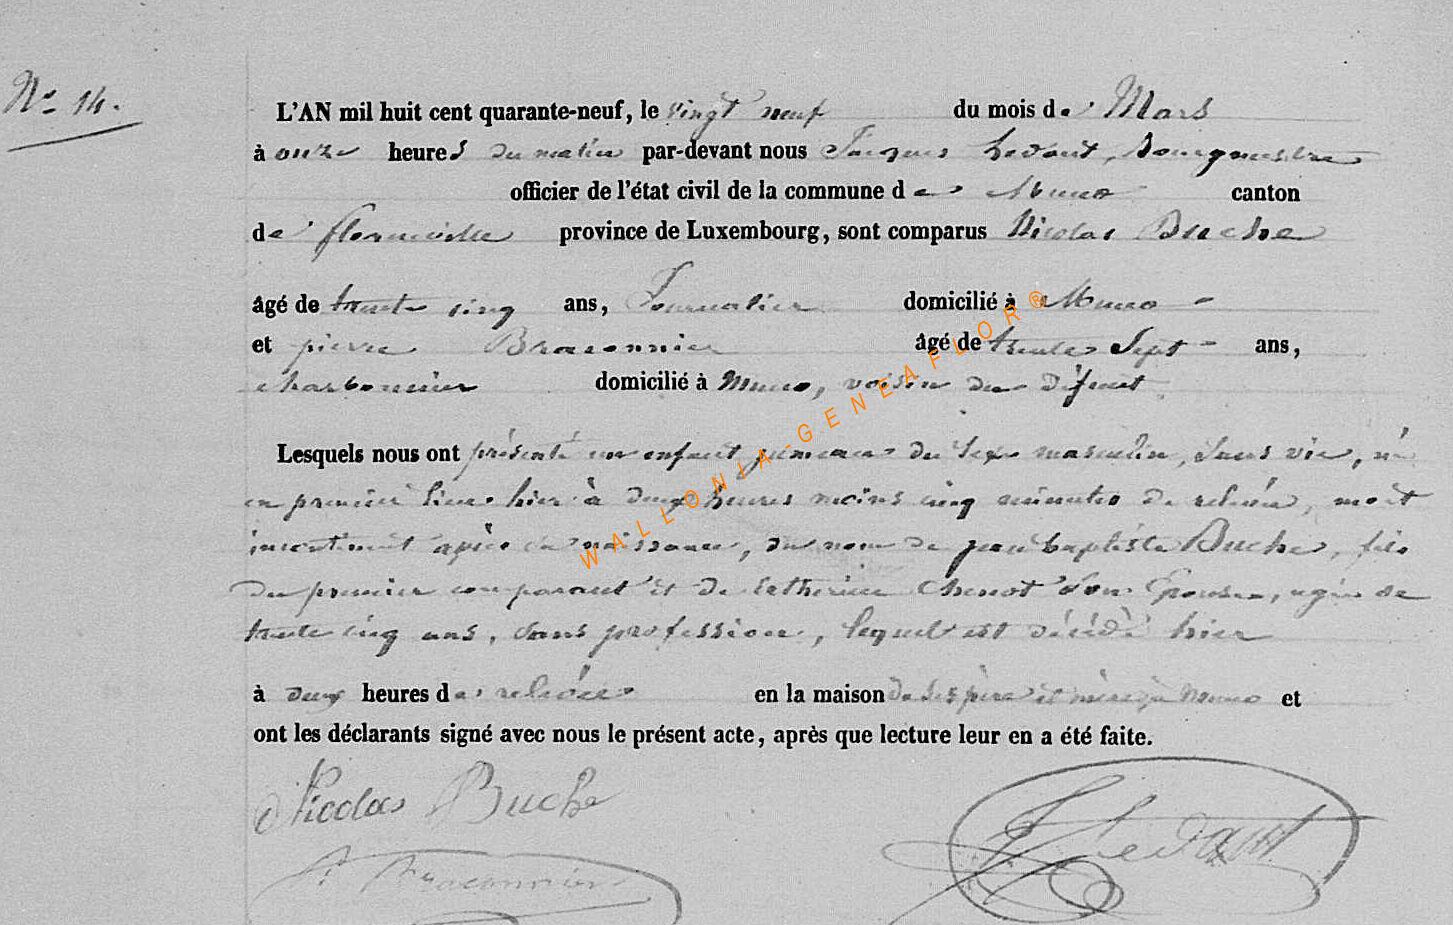 No 14.
L'AN mil huit cent quarante-neuf, le vingt neuf du mois de Mars
à onze heures du matin par-devant nous Jacques Ledant, Bourgmestre
officier de l'état civil de la commune de Muno canton
de florenville province de Luxembourg, sont comparus Nicolas Buche
âgé de trente cinq ans, Journalier domicilié à Muno
et pierre Braconnier âgé de trente Sept ans,
charbonnier domicilié à Muno, voisin du défunt
Lesquels nous ont présenté un enfant jumeau du Sexe masculin, Sans vie, né
en premier lieu hier à deux heures moins cinq minutes de relevée, mort
incontinent après sa naissance, du nom de jean baptiste Buche, fils
du premier comparant et de Catherine Chenot son Epouse, agée de
trente cinq ans, sans profession, lequel est décédé hier
à deux heures de relevée en la maison de Ses père et mère à Muno et
ont les déclarants signé avec nous le présent acte, après que lecture leur en a été faite.
Nicolas Buche
Ledant
P. Braconnier
WALLONIA-GENEAFLOR®